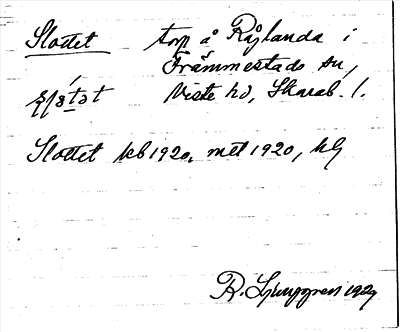 Slottet torp å Råglanda i
Främmestads sn,
Viste hd, Skarab. l.
Slottet kb 1920, mtl 1920, hlg
R. Ljunggren 1929